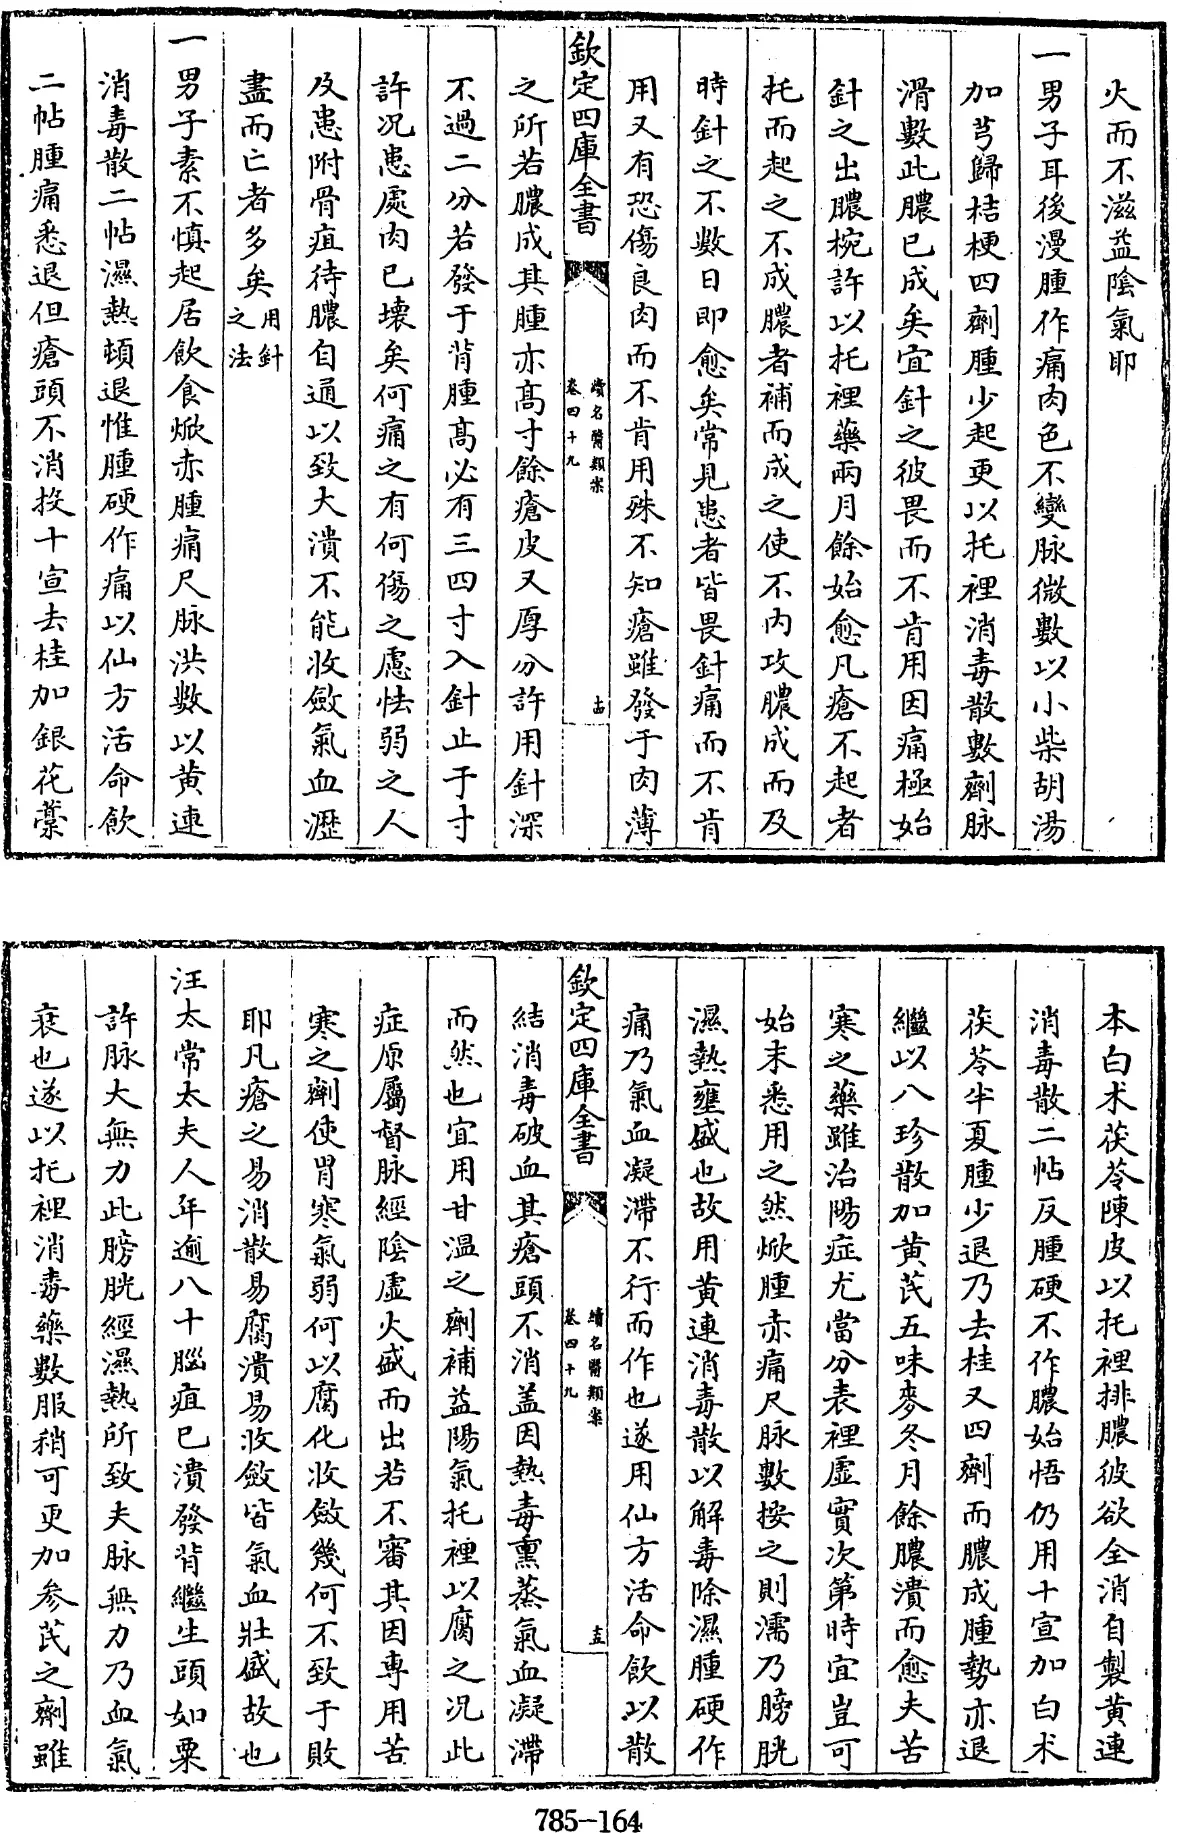 火而不滋益陰氣耶
一男子耳後漫腫作痛肉色不變脉微數以小柴胡湯
加芎歸桔梗四劑腫少起更以托裡消毒散數劑脉
滑數此膿已成矣宜針之彼畏而不肯用因痛極始
針之出膿椀許以托裡藥兩月餘始愈凡瘡不起者
托而起之不成膿者補而成之使不内攻膿成而及
時針之不數日即愈矣常見患者皆畏針痛而不肯
用又有恐傷良肉而不肯用殊不知瘡雖發于肉薄
欽定四庫全書
續名醫類案
卷四十九
古
之所若膿成其腫亦高寸餘瘡皮又厚分許用針深
不過二分若發于背腫高必有三四寸入針止于寸
許况患處肉已壞矣何痛之有何傷之慮怯弱之人
及患附骨疽待膿自通以致大潰不能收斂氣血瀝
盡而亡者多矣用針之法
一男子素不慎起居飲食焮赤腫痛尺脉洪數以黄連
消毒散二帖濕熱頓退惟腫硬作痛以仙方活命飲
二帖腫痛悉退但瘡頭不消投十宣去桂加銀花藁
本白术茯苓陳皮以托裡排膿彼欲全消自製黄連
消毒散二帖反腫硬不作膿始悟仍用十宣加白术
茯苓半夏腫少退乃去桂又四劑而膿成腫勢亦退
繼以八珍散加黄芪五味麥冬月餘膿潰而愈夫苦
寒之藥雖治陽症尤當分表裡虛實次第時宜豈可
始末悉用之然焮腫赤痛尺脉數按之則濡乃膀胱
濕熱壅盛也故用黄連消毒散以解毒除濕腫硬作
痛乃氣血凝滯不行而作也遂用仙方活命飲以散
欽定四庫全書
續名醫類案
卷四十九
十五
結消毒破血其瘡頭不消盖因熱毒熏蒸氣血凝滯
而然也宜用甘温之劑補益陽氣托裡以腐之况此
症原屬督脉經陰虛火盛而出若不審其因専用苦
寒之劑使胃寒氣弱何以腐化收斂幾何不致于敗
耶凡瘡之易消散易腐潰易收斂皆氣血壯盛故也
汪太常太夫人年逾八十腦疽已潰發背繼生頭如粟
許脉大無力此膀胱經濕熱所致夫脉無力乃血氣
衰也遂以托裡消毒藥數服稍可更加參芪之劑雖
785-164